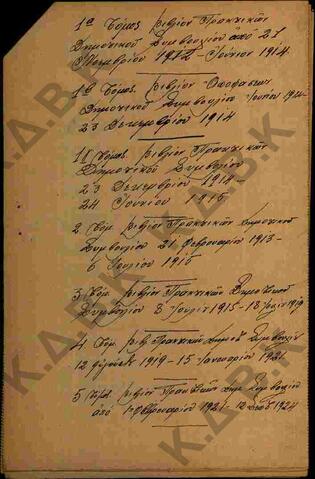 1α Τόμος βιβλίον Πρακτικῶν
Δημοτικοῦ Συμβουλίου από 21
1912 - Ιούνιον 1914
1β Τόμος βιβλίον Αποφάσεων
Δημοτικοῦ Συμβουλίου Ιουνίου
23 Δεκεμβρίου 1914
1γ Τόμος βιβλίον Πρακτικῶν
Δημοτικοῦ Συμβουλίου
23 Δεκεμβρίου 1914 -
24 Ιουνίου 1915
2 Τόμ βιβλίον Πρακτικῶν Δημοτικοῦ
Συμβουλίου 21 Φεβρουαρίου 1913 -
6 Ιουλίου 1915
3 Τόμ. βιβλίον Πρακτικῶν Δημοτικοῦ
Συμβουλίου 8 Ιουλίου 1915 - 18 1919
4 Τομ. βιβ Πρακτικῶν Δημοτ Συμβουλίου
12 1919 - 15 Ιανουαρίου 1921
5 Τομ βιβλίον Πρακτικῶν Δημ Συμβουλίου
από 1 Φεβρουαρίου 1921 - 1924
Κ.Δ.Β.Κ